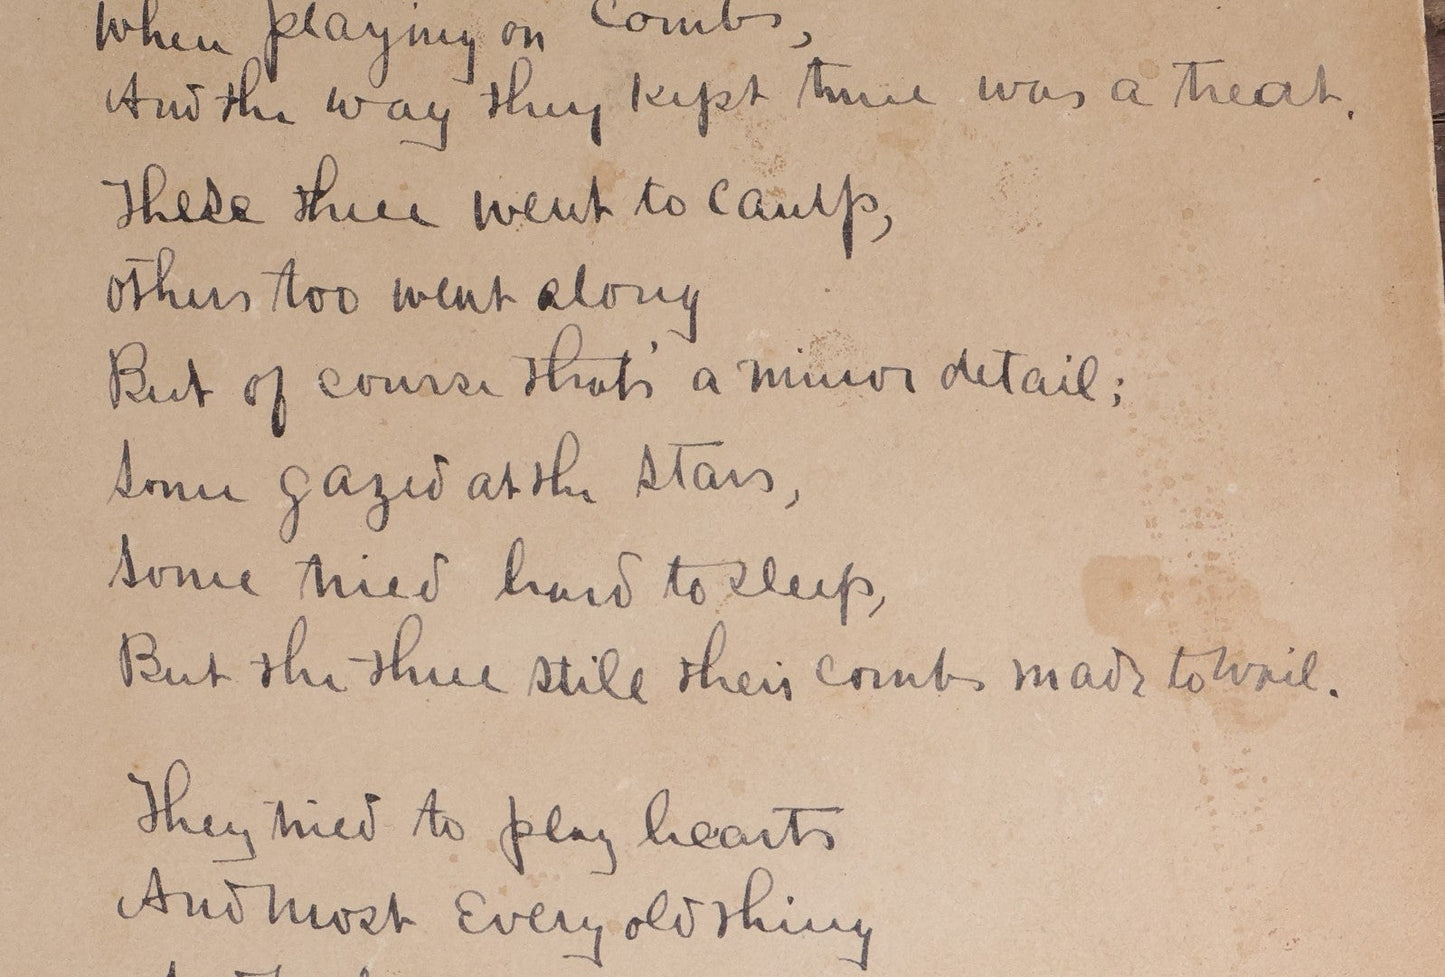 When playing on Combs,
And the way they kept time was a treat.
These three went to Camp,
others too went along
But of course that's a minor detail;
Some gazed at the Stars,
Some tried hard to sleep,
But the three still their combs made to wail.
They tried to play hearts
And most Every old thing